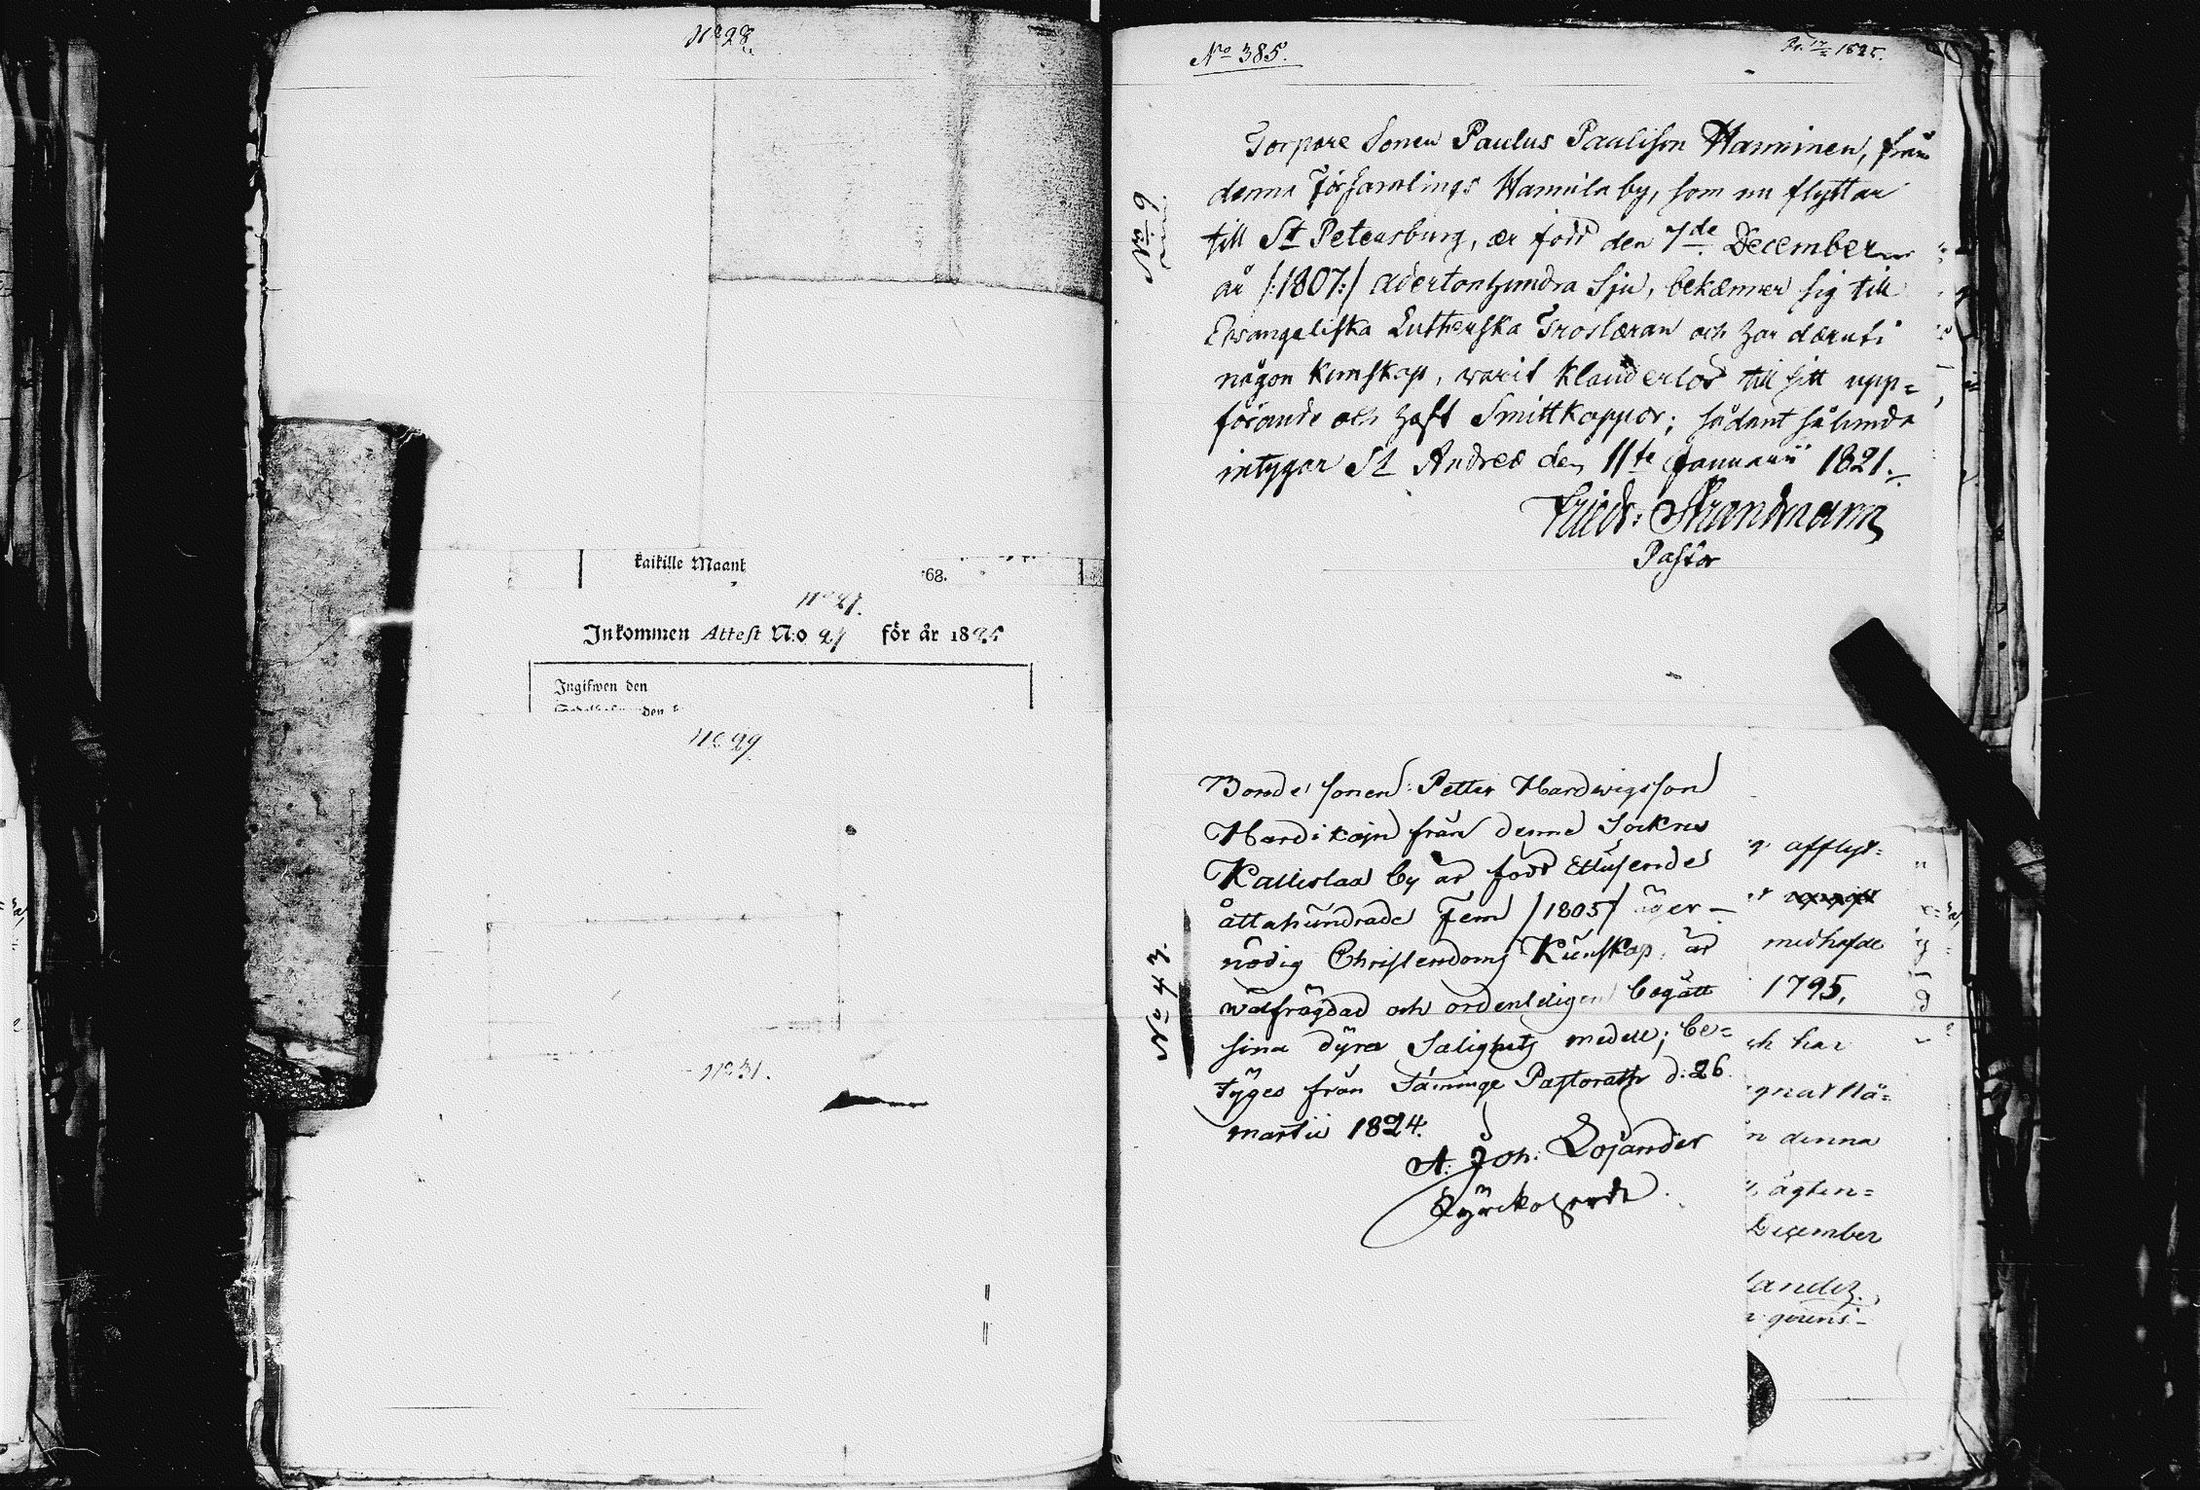 No 28.
kaikille Maant
68.
No 27.
Inkommen Attest N:o 27 för år 1825
Ingifwen den
den
No 29
No 31.
No 385.
1825.
No 9
Torpare Sonen Paulus Paulison Hanninen, från
denna Församlings Hannila by, som nu flyttar
till St Petersburg, är född den 7de December
år /:1807:/ adertonhundra Sju, bekänner sig till
Evangeliska Lutherska Trosläran och har däruti
någon kunskap, warit klanderlös till sitt upp=
förande och haft Smittkoppor; sådant sålunda
intygar St Andreæ den 11te Januarii 1821.
Friedr: Strandmann
Pastor
No 43.
Bonde sonen Petter Hardwigsson
Hardikajn från denne Sockns
Kallislax by är född Ettusende
åttahundrade Fem /1805/ äger
nödig Christendoms Kunskap, är
wälfrägdad och ordenteligen begått
sina dyra Salighets medell; be=
tyges från Säminge Pastorath d: 26
martii 1824.
A: Joh: Lojander
Kyrkoherde.
afflyt=
medhafde
1795,
ch har
gnat Nä=
n denna
ägten=
December
lander.